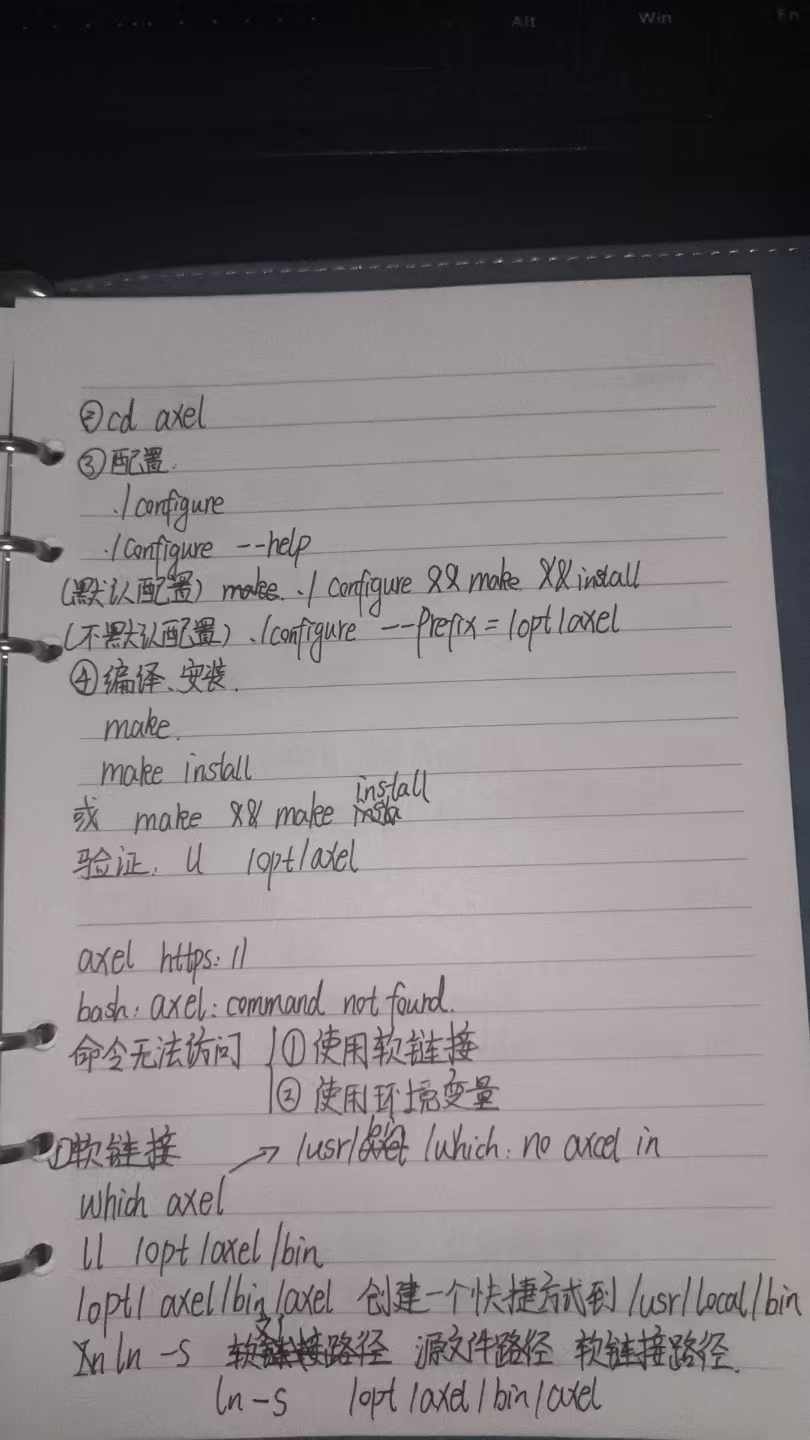 Alt Win En
②cd axel
③配置.
./configure
./configure --help
(默认配置) make. ./ configure && make && install
(不默认配置) ./configure --prefix=/opt/axel
④编译、安装.
make.
make install
或 make && make install
验证: ll /opt/axel
axel https://
bash: axel: command not found.
命令无法访问 ①使用软链接
②使用环境变量
①软链接 → /usr/bin/which: no axcel in
which axel
ll /opt/axel/bin
/opt/axel/bin/axel 创建一个快捷方式到/usr/local/bin
ln -s 源文件路径 软链接路径.
ln -s /opt/axel/bin/axel